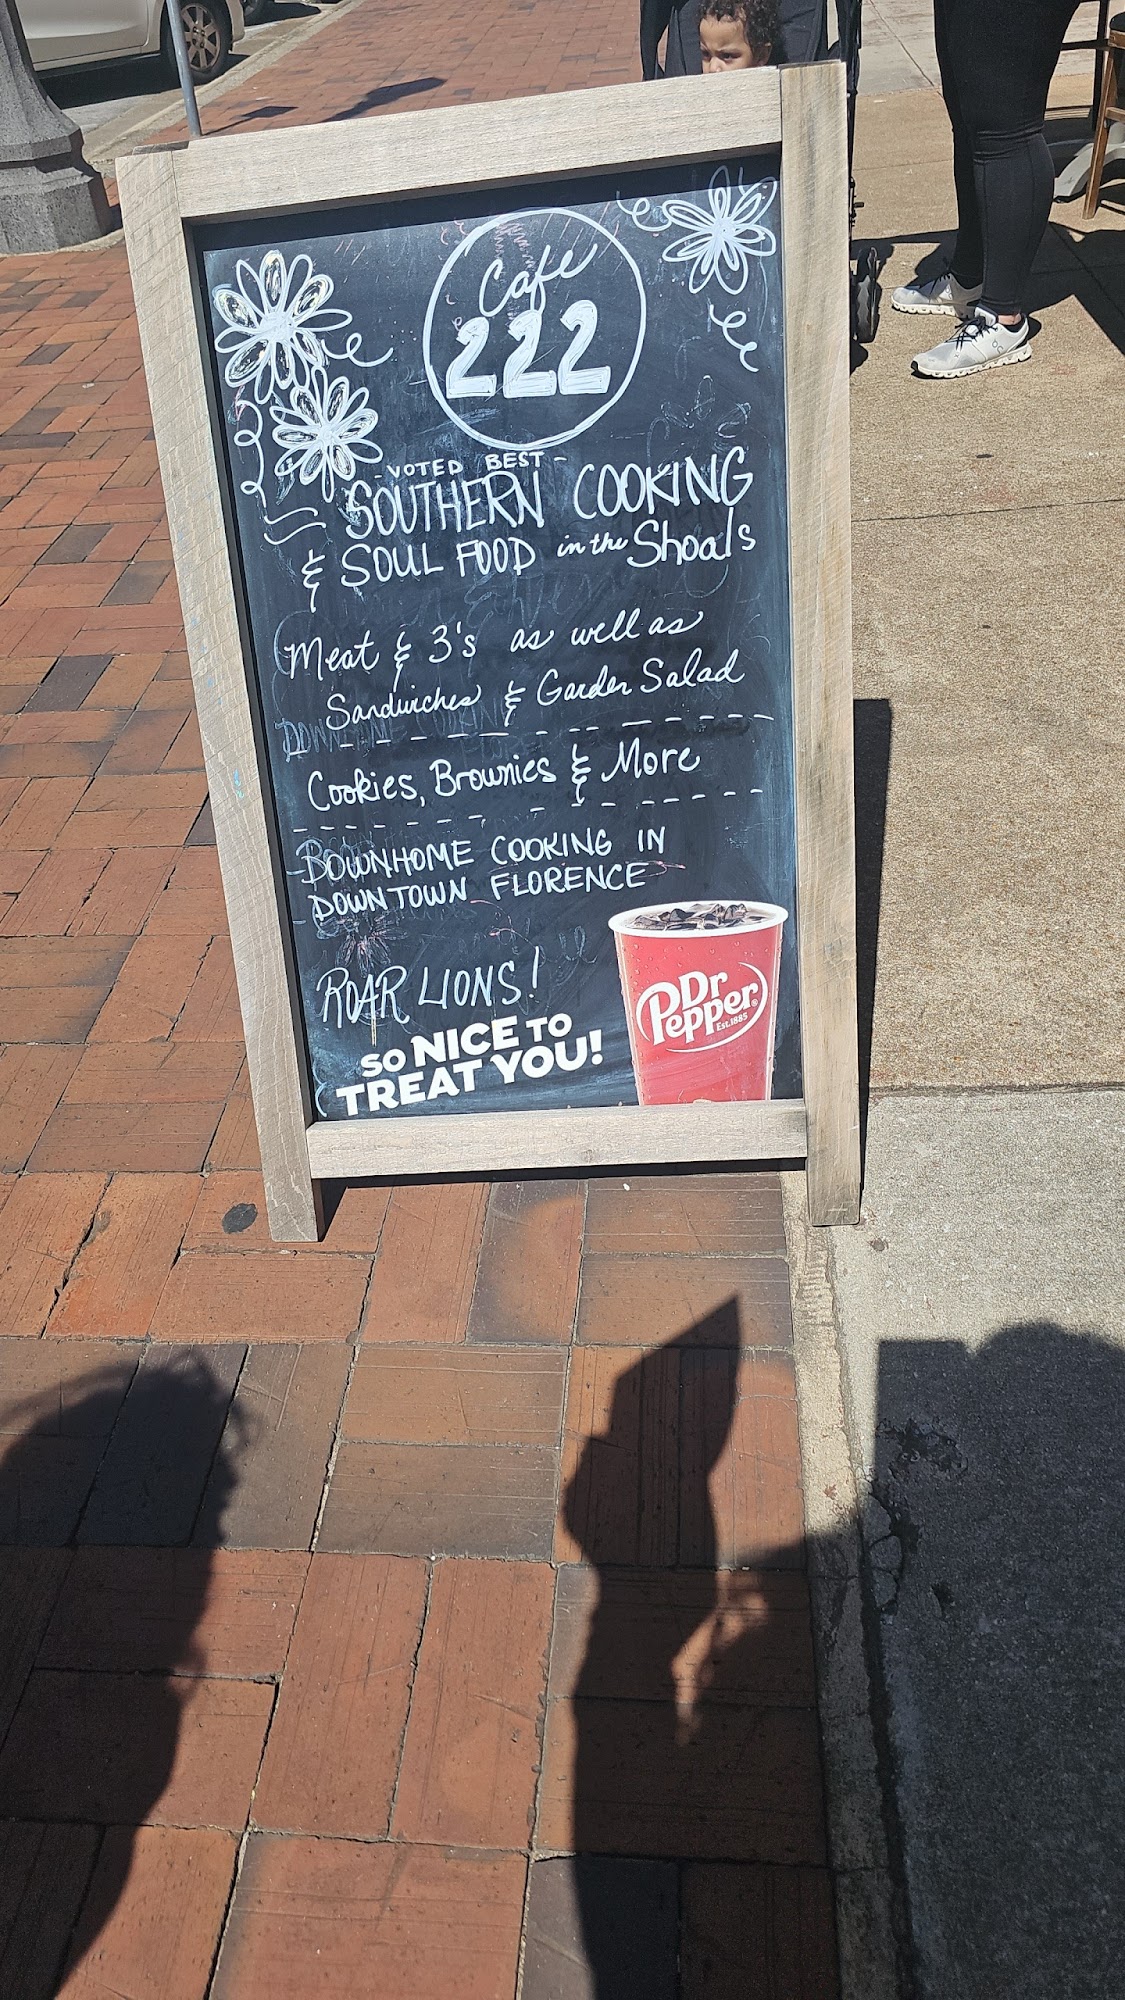 Cafe
222
- VOTED BEST -
SOUTHERN COOKING
& SOUL FOOD in the Shoals
Meat & 3's as well as
Sandwiches & Garden Salad
Cookies, Brownies & More
DOWNHOME COOKING IN
DOWNTOWN FLORENCE
ROAR LIONS!
SO NICE TO
TREAT YOU!
Dr
Pepper
Est. 1885